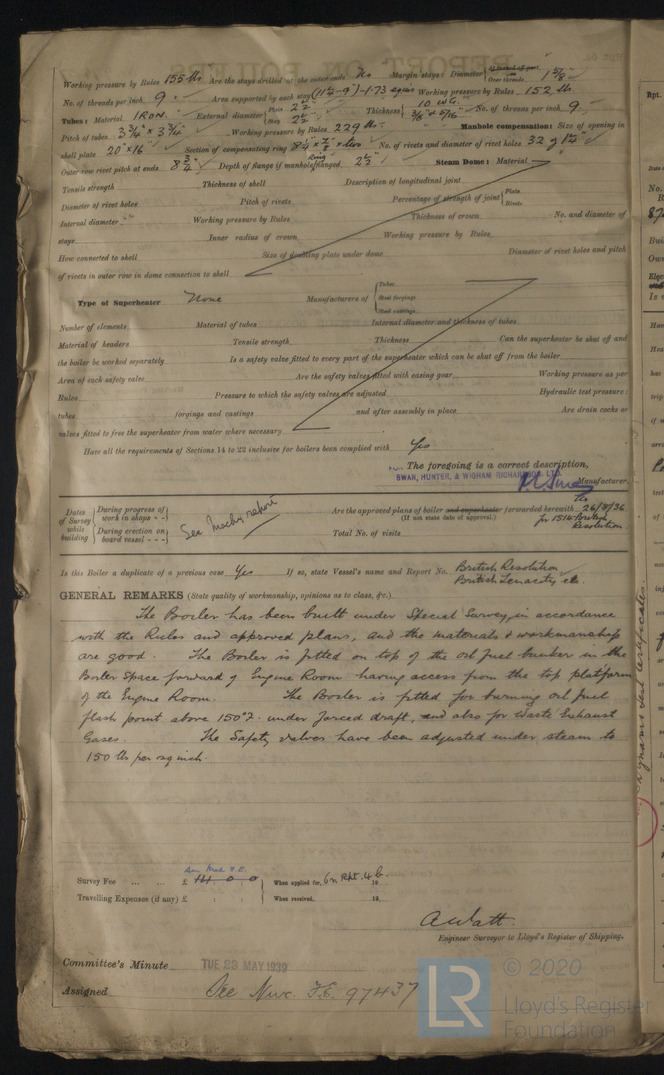 Working pressure by Rules 155 lbs Are the stays drilled at the outer ends No Margin stays: Diameter { At turned off part, or Over threads 1 5/8"
No. of threads per inch 9 Area supported by each stay (11¼"-9")-1.73 sq ins Working pressure by Rules 152 lbs
Tubes: Material IRON External diameter { Plain 2½" Stay 2½" Thickness { 10 W.G. 3/8" & 5/16" No. of threads per inch 9
Pitch of tubes 3¾" x 3¾" Working pressure by Rules 229 lbs Manhole compensation: Size of opening in
shell plate 20" x 16" Section of compensating ring No. of rivets and diameter of rivet holes 32 of 1¼"
Outer row rivet pitch at ends 8¾" Depth of flange if manhole flanged Ring 2½" Steam Dome: Material
Tensile strength Thickness of shell Description of longitudinal joint
Diameter of rivet holes Pitch of rivets Percentage of strength of joint { Plate Rivets
Internal diameter Working pressure by Rules Thickness of crown No. and diameter of
stays Inner radius of crown Working pressure by Rules
How connected to shell Size of doubling plate under dome Diameter of rivet holes and pitch
of rivets in outer row in dome connection to shell
Type of Superheater None Manufacturers of { Tubes Steel forgings Steel castings
Number of elements Material of tubes Internal diameter and thickness of tubes
Material of headers Tensile strength Thickness Can the superheater be shut off and
the boiler be worked separately Is a safety valve fitted to every part of the superheater which can be shut off from the boiler
Area of each safety valve Are the safety valves fitted with easing gear Working pressure as per
Rules Pressure to which the safety valves are adjusted Hydraulic test pressure:
tubes forgings and castings and after assembly in place Are drain cocks or
valves fitted to free the superheater from water where necessary
Have all the requirements of Sections 14 to 22 inclusive for boilers been complied with Yes
The foregoing is a correct description,
SWAN, HUNTER, & WIGHAM RICHARDSON, LTD.
Manufacturer.
Dates of Survey while building { During progress of work in shops - - During erection on board vessel - - - } See Mach'y report
Are the approved plans of boiler and superheater forwarded herewith 26/8/36
(If not state date of approval.) for 1514 British Resolution
Total No. of visits
Is this Boiler a duplicate of a previous case Yes If so, state Vessel's name and Report No. British Resolution
British Tenacity etc.
GENERAL REMARKS (State quality of workmanship, opinions as to class, &c.)
The Boiler has been built under Special Survey, in accordance
with the Rules and approved plans, and the materials & workmanship
are good. The Boiler is fitted on top of the oil fuel bunker in the
Boiler Space forward of Engine Room having access from the top platform
of the Engine Room. The Boiler is fitted for burning oil fuel
flash point above 150°F. under forced draft, and also for Waste Exhaust
Gases. The Safety valves have been adjusted under steam to
150 lbs per sq inch.
Survey Fee ... ... £ 14 0 0 When applied for, 19
Travelling Expenses (if any) £ : : When received, 19
A Watt.
Engineer Surveyor to Lloyd's Register of Shipping.
Committee's Minute TUE 23 MAY 1939
Assigned See Nwc. F.E. 97437
LR © 2020
Lloyd's Register
Foundation